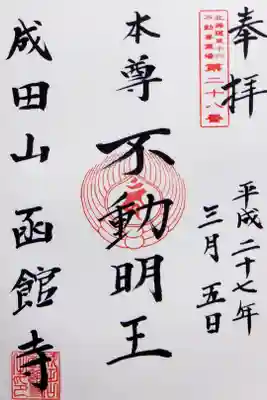 奉拝
北海道三十六
不動尊霊場
第二十八番
平成二十七年
三月五日
本尊
不動明王
成田山函館寺